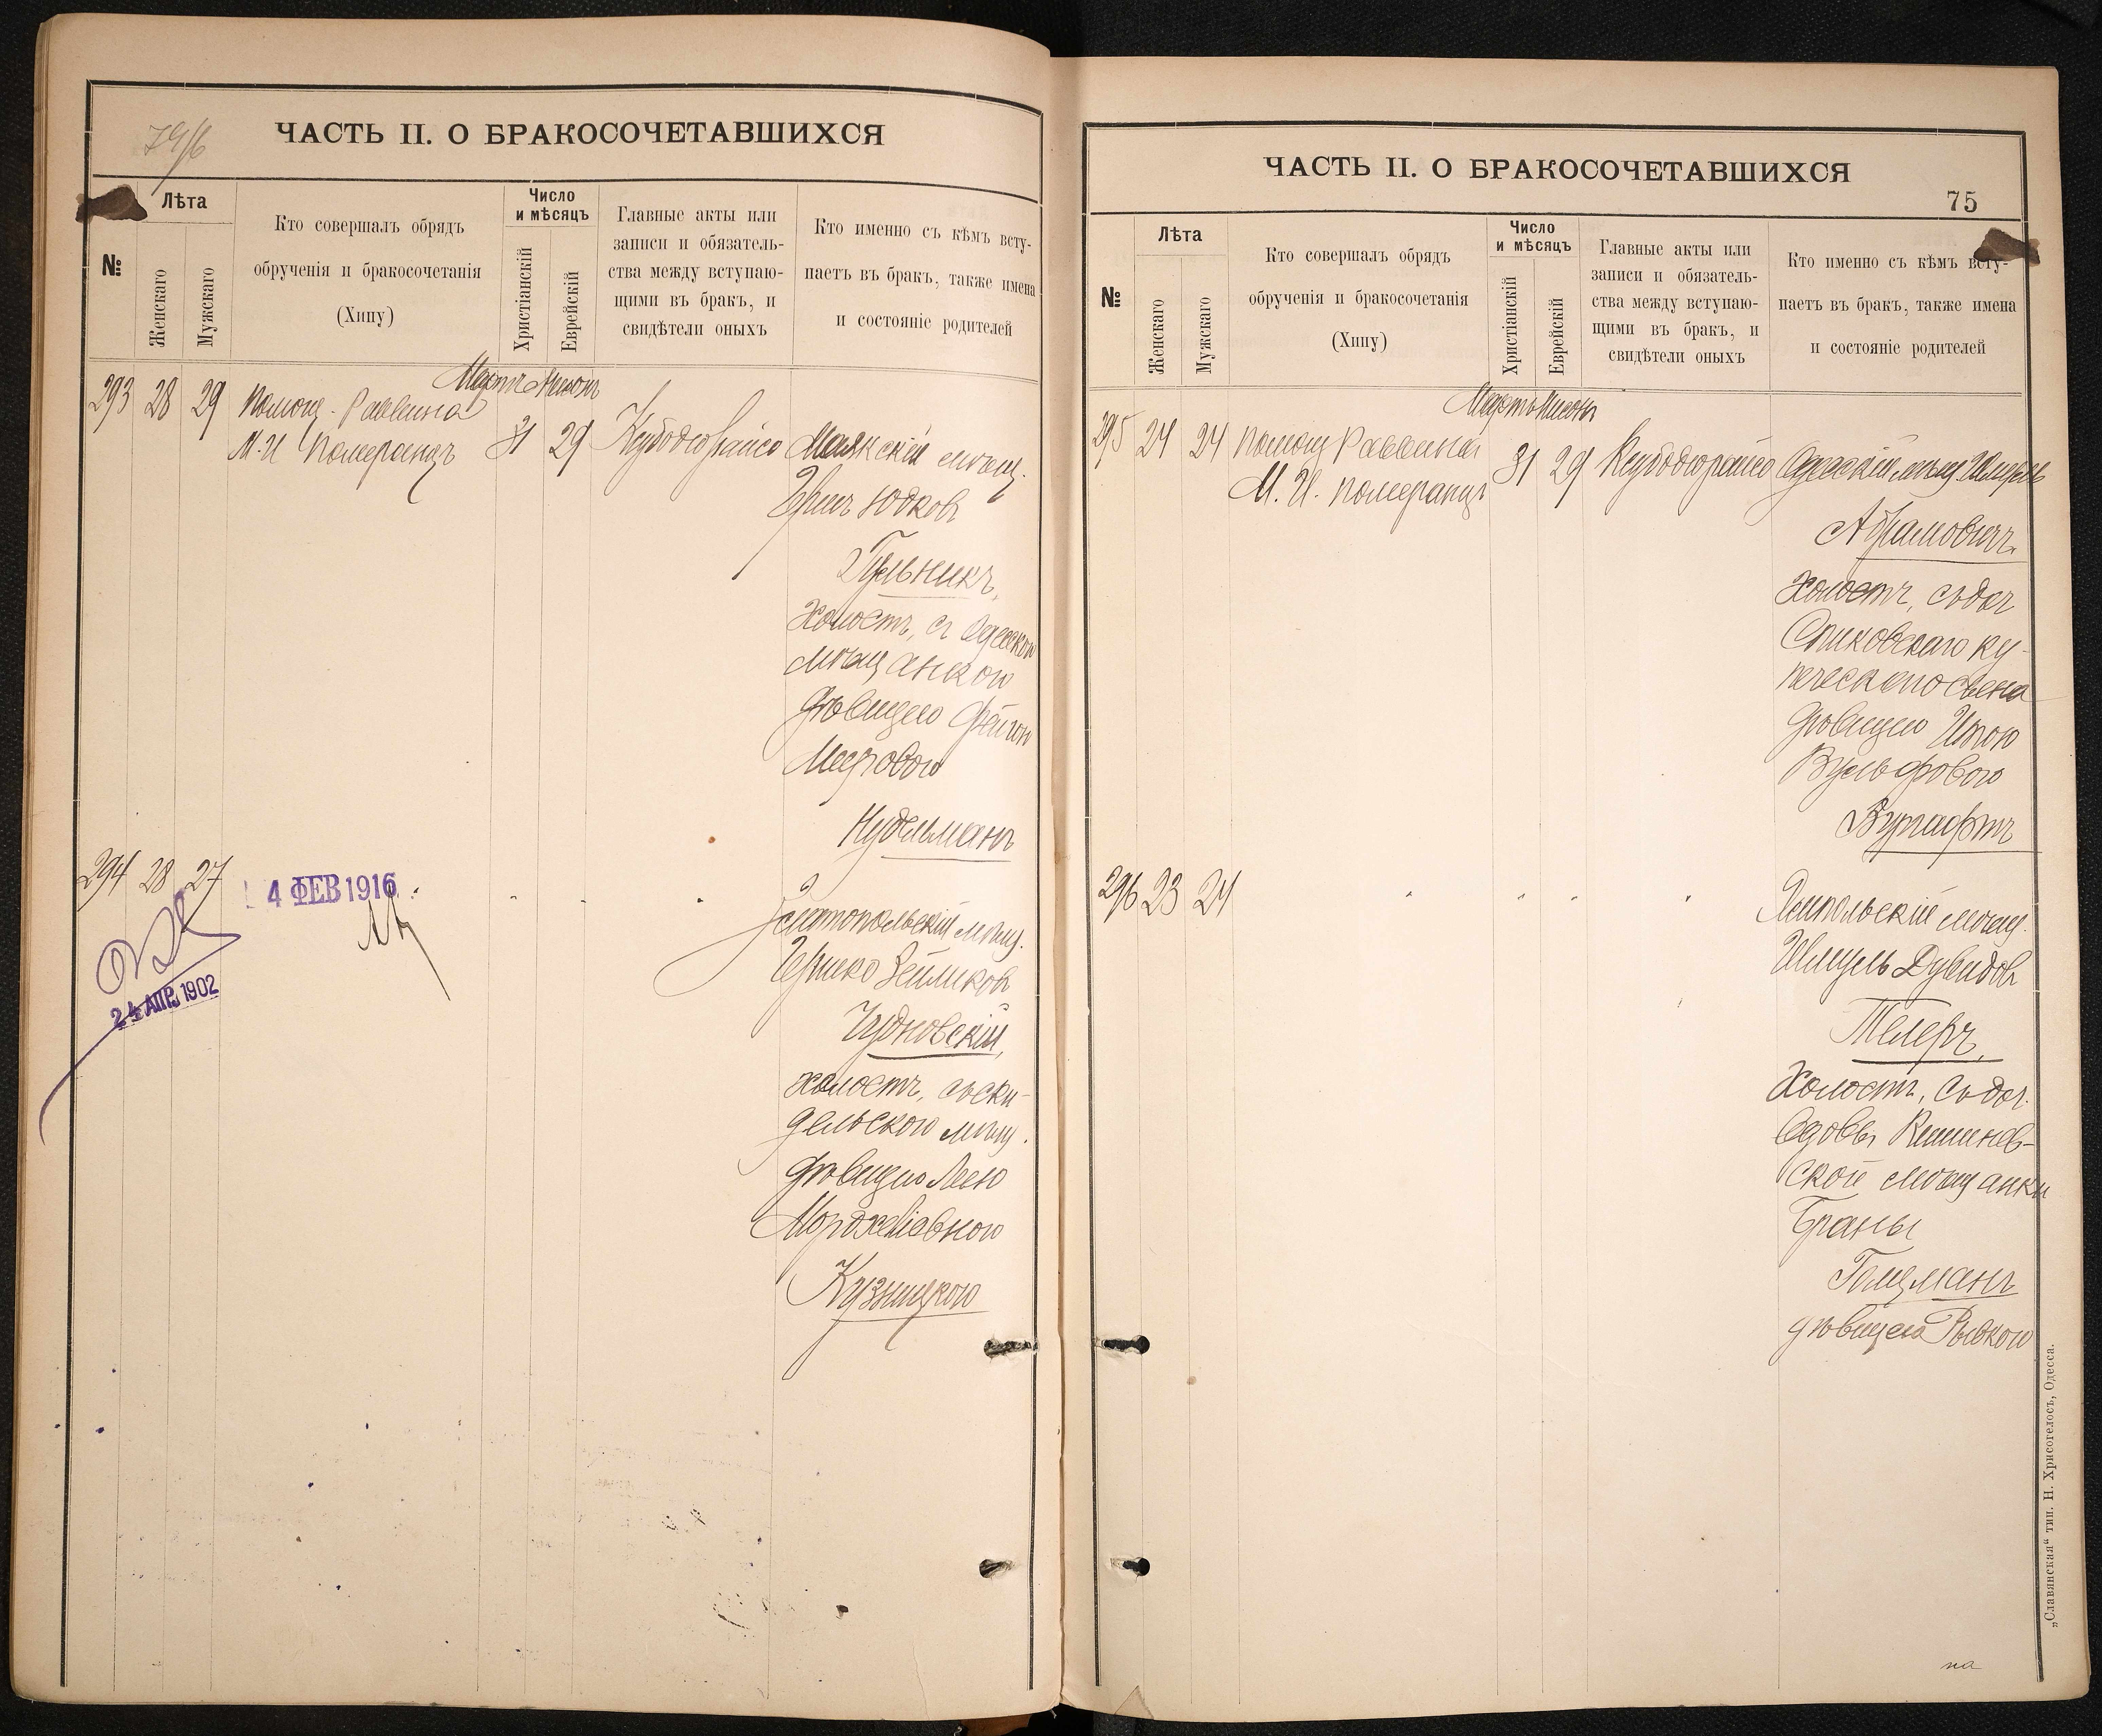 ЧАСТЬ II. О БРАКОСОЧЕТАВШИХСЯ
№
Лѣта
Женскаго
Мужскаго
Кто совершалъ обрядъ
обрученія и бракосочетанія
(Хипу)
Число
и мѣсяцъ
Христіанскій
Еврейскій
Главные акты или
записи и обязатель-
ства между вступаю-
щими въ бракъ, и
свидѣтели оныхъ
Кто именно съ кѣмъ всту-
паетъ въ бракъ, также имена
и состояніе родителей
Мартъ Нисонъ
293 28 29 Помощ. Раввина
М. И. Померанцъ 31 29 Маякскій мѣщ.
Юдковъ
Гульникъ,
Холостъ, съ Одесскою
мѣщанкою
дѣвицею
Мееровою
Нудельманъ
294 28 27
4 ФЕВ 1916
24 АПР. 1902
мѣщ.
Гершко Зейликовъ
Чудновскій,
холостъ, съ ски-
дельскою мѣщ.
дѣвицею Леею
Мордхелiовною
Кузницкою
ЧАСТЬ II. О БРАКОСОЧЕТАВШИХСЯ
75
№
Лѣта
Женскаго
Мужскаго
Кто совершалъ обрядъ
обрученія и бракосочетанія
(Хипу)
Число
и мѣсяцъ
Христіанскій
Еврейскій
Главные акты или
записи и обязатель-
ства между вступаю-
щими въ бракъ, и
свидѣтели оныхъ
Кто именно съ кѣмъ всту-
паетъ въ бракъ, также имена
и состояніе родителей
Мартъ Нисонъ
295 24 24 Помощ Раввина
М. И. Померанцъ 31 29 Одесскій мѣщ.
Абрамовичъ.
Холостъ, съ доч.
ку-
печескаго сына
дѣвицею Итою
Вульфовою
Вугафтъ
296 23 24
Ямпольскій мѣщ.
Шмуль Дувидовъ
Телеръ,
Холостъ, съ доч.
вдовы Кишинев-
ской мѣщанки
Браны
Голцманъ
дѣвицею Рывкою
на
„Славянская“ тип. Н. Хрисогелосъ, Одесса.